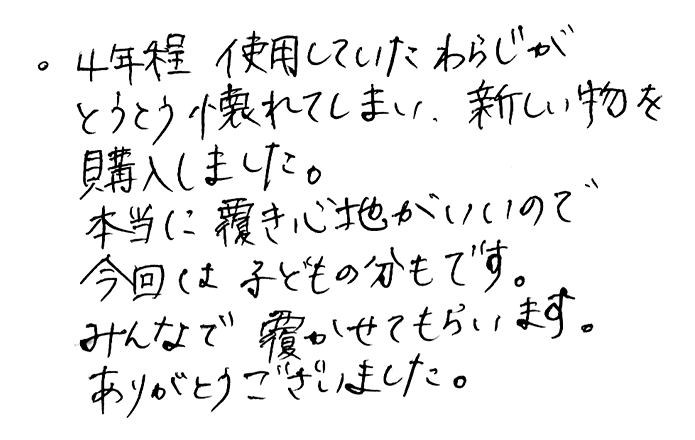 。4年程 使用していたわらじが
とうとう懐れてしまい、新しい物を
購入しました。
本当に覆き心地がいいので
今回は子どもの分もです。
みんなで覆かせてもらいます。
ありがとうございました。